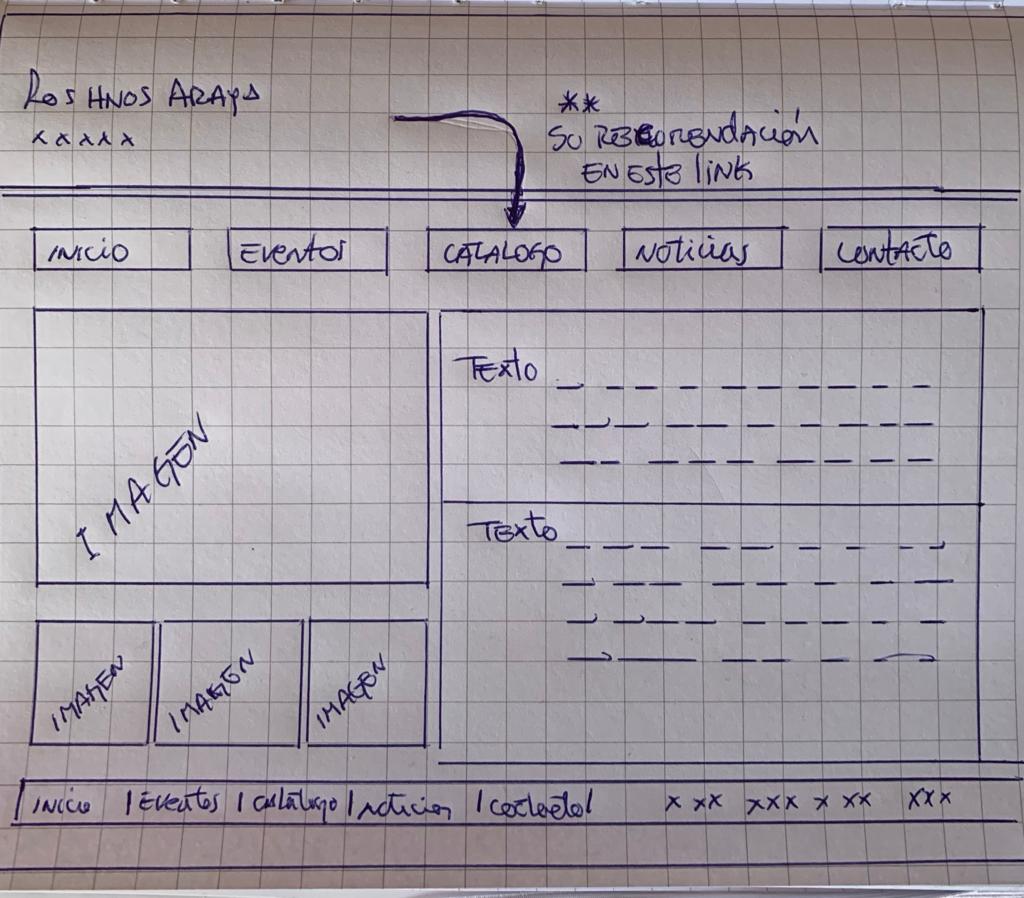 Los HNOS ARAYA
xxxxx
**
SU RECOMENDACIÓN
EN ESTE LINK
INICIO
EVENTOS
CATALOGO
NOTICIAS
CONTACTO
IMAGEN
TEXTO
TEXTO
IMAGEN
IMAGEN
IMAGEN
INICIO | EVENTOS | CATÁLOGO | NOTICIAS | CONTACTO | x xx xxx x xx xxx